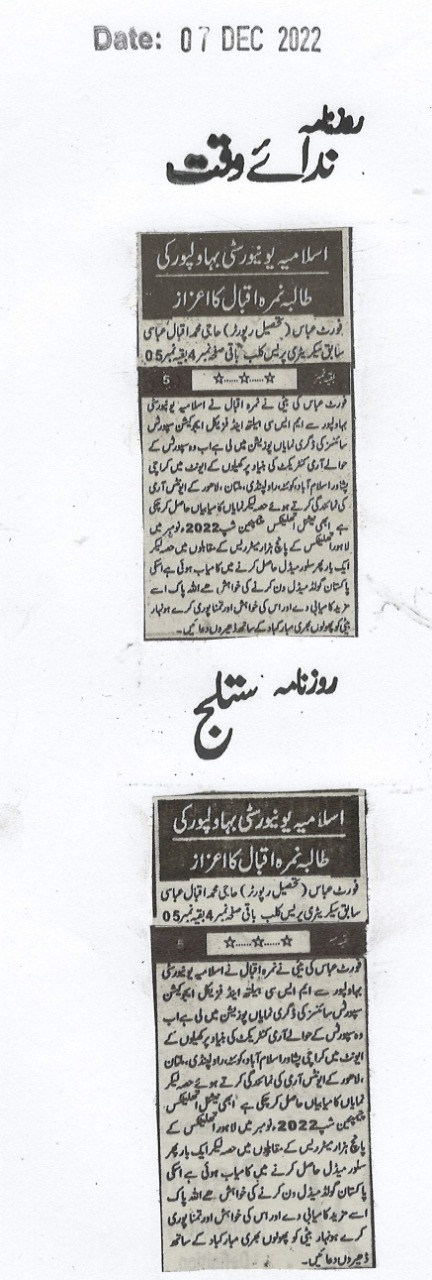 Date: 07 DEC 2022
روزنامہ
نوائے وقت
اسلامیہ یونیورسٹی بہاولپور کی
طالبہ نمرہ اقبال کا اعزاز
فورٹ عباس (تحصیل رپورٹر) حاجی محمد اقبال عباسی
سابق سیکریٹری پریس کلب باقی صفحہ نمبر 4 بقیہ نمبر 05
بقیہ نمبر ☆.....☆.....☆ 5
فورٹ عباس کی بیٹی نے نمرہ اقبال نے اسلامیہ یونیورسٹی
بہاولپور سے ایم ایس سی ہیلتھ اینڈ فزیکل ایجوکیشن سپورٹس
سائنسز کی ڈگری نمایاں پوزیشن میں لی ہے اب وہ سپورٹس کے
حوالے آرمی کنٹریکٹ کی بنیاد پر کھیلوں کے ایونٹ میں کراچی
پشاور اسلام آباد، کوئٹہ، راولپنڈی، ملتان، لاہور کے ایونٹس آرمی
کی نمائندگی کرتے ہوئے حصہ لیکر نمایاں کامیابیاں حاصل کر چکی
ہے ابھی نیشنل اتھلیکس چیمپئین شپ 2022ء نومبر میں
لاہور اتھلیکس کے پانچ ہزار میٹر ریس کے مقابلوں میں حصہ لیکر
ایک بار پھر سلور میڈل حاصل کرنے میں کامیاب ہوئی ہے اسکی
پاکستان گولڈ میڈل ون کرنے کی خواہش ھے اللہ پاک اسے
مزید کامیابی دے اور اس کی خواہش اور تمنا پوری کرے ہونہار
بیٹی کو پھولوں بھری مبارکباد کے ساتھ ڈھیروں دعائیں۔
روزنامہ ستلج
اسلامیہ یونیورسٹی بہاولپور کی
طالبہ نمرہ اقبال کا اعزاز
فورٹ عباس (تحصیل رپورٹر) حاجی محمد اقبال عباسی
سابق سیکریٹری پریس کلب باقی صفحہ نمبر 4 بقیہ نمبر 05
☆.....☆.....☆ 5
فورٹ عباس کی بیٹی نے نمرہ اقبال نے اسلامیہ یونیورسٹی
بہاولپور سے ایم ایس سی ہیلتھ اینڈ فزیکل ایجوکیشن
سپورٹس سائنسز کی ڈگری نمایاں پوزیشن میں لی ہے اب
وہ سپورٹس کے حوالے آرمی کنٹریکٹ کی بنیاد پر کھیلوں کے
ایونٹ میں کراچی پشاور اسلام آباد، کوئٹہ، راولپنڈی، ملتان
،لاہور کے ایونٹس آرمی کی نمائندگی کرتے ہوئے حصہ لیکر
نمایاں کامیابیاں حاصل کر چکی ہے ابھی نیشنل اتھلیکس
چیمپئین شپ 2022ء نومبر میں لاہور اتھلیکس کے
پانچ ہزار میٹر ریس کے مقابلوں میں حصہ لیکر ایک بار پھر
سلور میڈل حاصل کرنے میں کامیاب ہوئی ہے اسکی
پاکستان گولڈ میڈل ون کرنے کی خواہش ھے اللہ پاک
اسے مزید کامیابی دے اور اس کی خواہش اور تمنا پوری
کرے ہونہار بیٹی کو پھولوں بھری مبارکباد کے ساتھ
ڈھیروں دعائیں۔